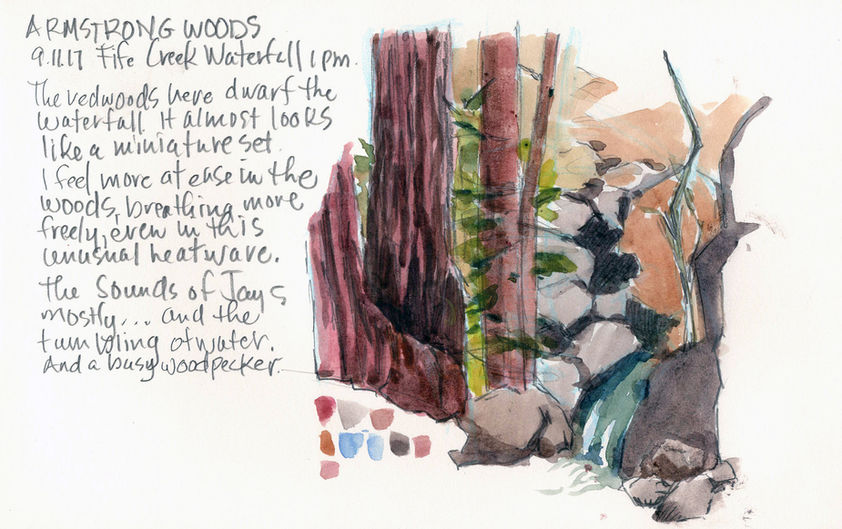 ARMSTRONG WOODS
9.11.17 Fife Creek Waterfall 1 pm.
The redwoods here dwarf the
waterfall. It almost looks
like a miniature set.
I feel more at ease in the
woods, breathing more
freely, even in this
unusual heatwave.
The sounds of Jays
mostly... and the
tumbling of water.
And a busy woodpecker.